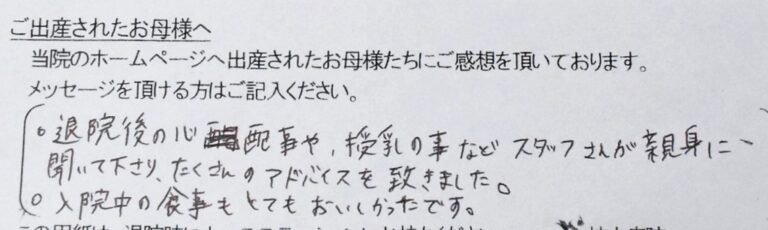 ご出産されたお母様へ
当院のホームページへ出産されたお母様たちにご感想を頂いております。
メッセージを頂ける方はご記入ください。
○退院後の心配事や、授乳の事など スタッフさんが親身に
聞いて下さり、たくさんのアドバイスを致きました。
○入院中の食事もとてもおいしかったです。